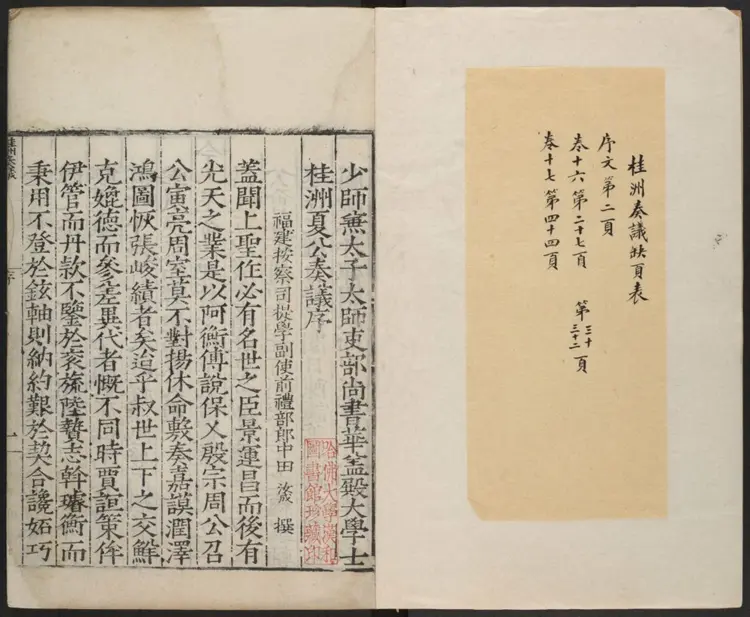 桂洲奏議缺頁表
序文第二頁
卷十六第二十七頁 第三十 三十二頁
卷十七第四十四頁
少師兼太子太師吏部尚書華蓋殿大學士
桂洲夏公奏議序
福建按察司提學副使前禮部郎中田汝成撰
蓋聞上聖作必有名世之臣景運昌而後有
先天之業是以阿衡傅說保乂殷宗周公召
公寅亮周室莫不對揚休命敷奏嘉謨潤澤
鴻圖恢張峻績者矣迨乎叔世上下之交鮮
克媲德而參差異代者慨不同時賈誼策侔
伊管而丹款不鑒於衮旒陸贄志斡璿衡而
秉用不登於鉉軸則納約艱於契合讒妬巧
哈佛大學漢和
圖書館珍藏印